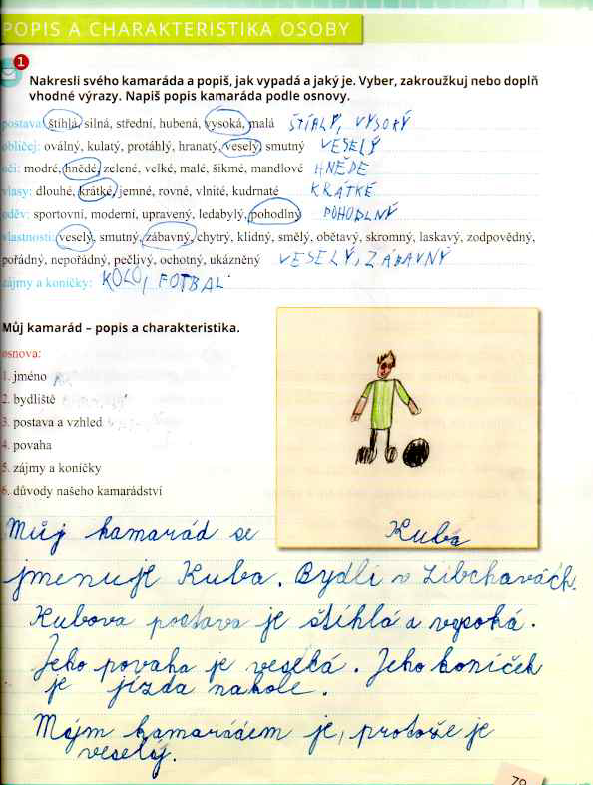 POPIS A CHARAKTERISTIKA OSOBY
1
Nakresli svého kamaráda a popiš, jak vypadá a jaký je. Vyber, zakroužkuj nebo doplň
vhodné výrazy. Napiš popis kamaráda podle osnovy.
postava: štíhlá, silná, střední, hubená, vysoká, malá ŠTÍHLÝ, VYSOKÝ
obličej: oválný, kulatý, protáhlý, hranatý, veselý, smutný VESELÝ
oči: modré, hnědé, zelené, velké, malé, šikmé, mandlové HNĚDE
vlasy: dlouhé, krátké, jemné, rovné, vlnité, kudrnaté KRÁTKÉ
oděv: sportovní, moderní, upravený, ledabylý, pohodlný POHODLNÝ
vlastnosti: veselý, smutný, zábavný, chytrý, klidný, smělý, obětavý, skromný, laskavý, zodpovědný,
pořádný, nepořádný, pečlivý, ochotný, ukázněný VESELÝ, ZÁBAVNÝ
zájmy a koníčky: KOLO, FOTBAL
Můj kamarád – popis a charakteristika.
osnova:
1. jméno
2. bydliště
3. postava a vzhled
4. povaha
5. zájmy a koníčky
6. důvody našeho kamarádství
Kuba
Můj kamarád se
jmenuje Kuba. Bydlí v Libchavách.
Kubova postava je štíhlá a vysoká.
Jeho povaha je veselá. Jeho koníček
je jízda nakole.
Mojm kamarádem je, protože je
veselý.
79